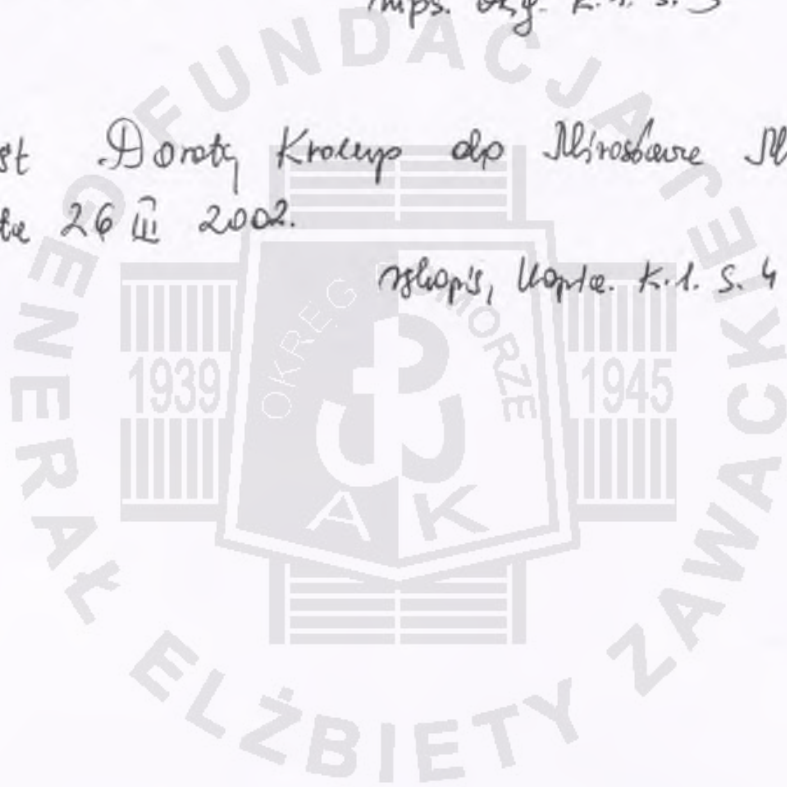 mps. org. k. 1. s. 3
st Doroty Kromp do Mirosława M
ta 26 III 2002.
rękopis, kopia. k. 1. s. 4
FUNDACJA
GENERAŁ ELŻBIETY ZAWACKIEJ
OKRĘG POMORZE
1939 1945
AK